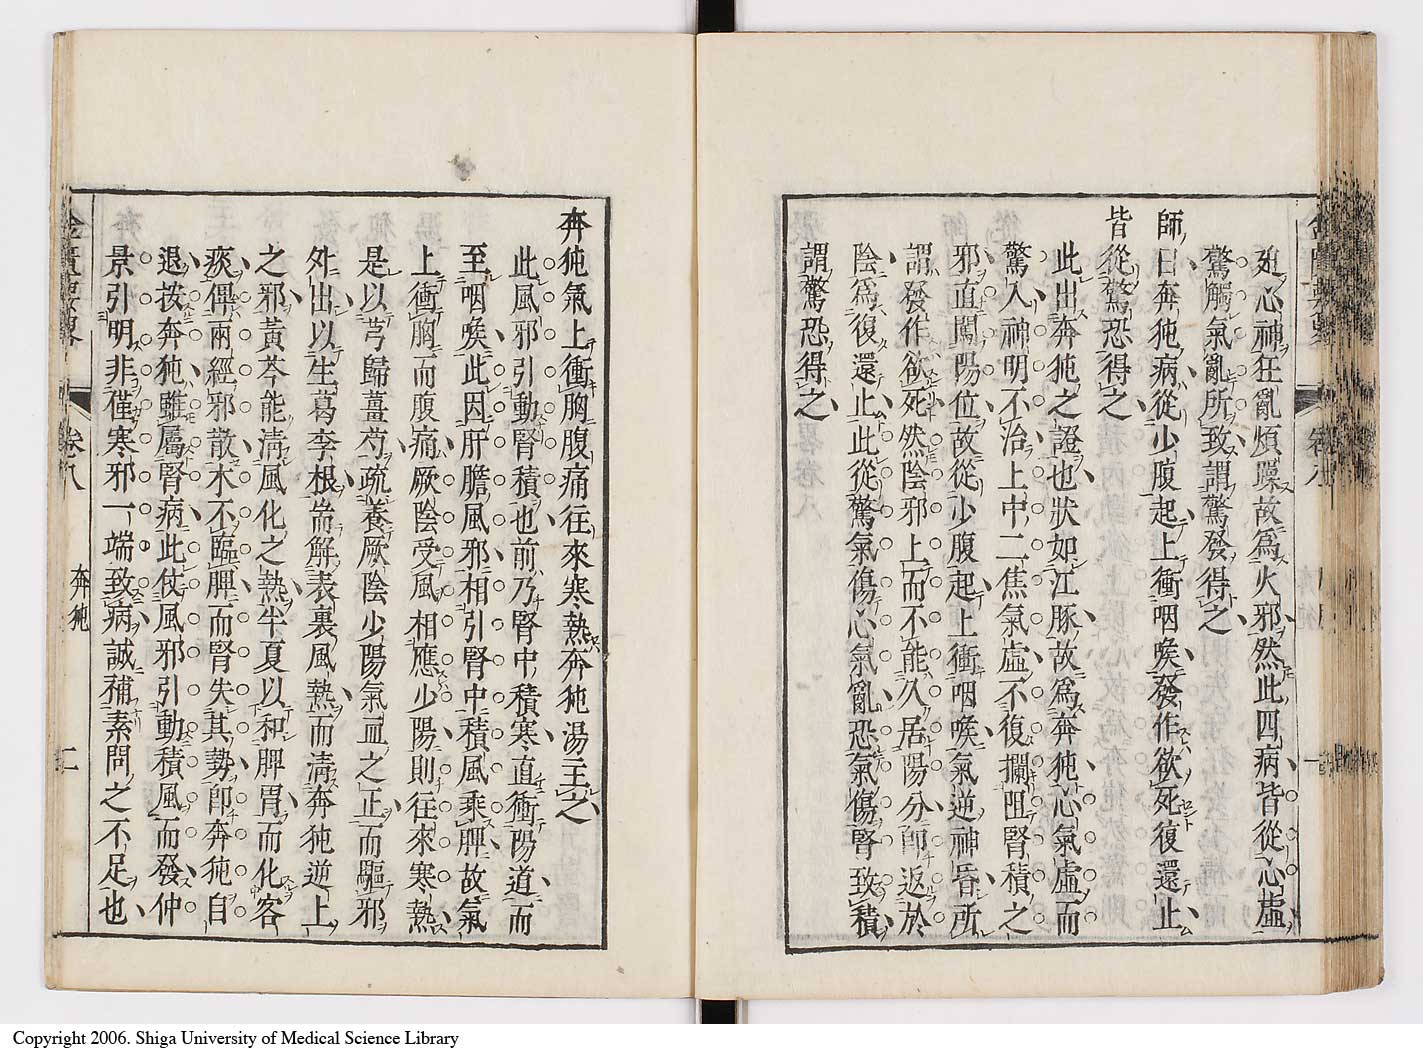 廹心神狂亂煩躁故爲火邪然此四病皆從心虛
驚觸氣亂所致謂驚發得之
師曰奔㹠病從少腹起上衝咽喉發作欲死復還止
皆從驚恐得之
此出奔㹠之證也狀如江豚故爲奔㹠心氣虛而
驚入神明不治上中二焦氣虛不復攔阻腎積之
邪直闖陽位故從少腹起上衝咽喉氣逆神昏所
謂發作欲死然陰邪上而不能久居陽分卽返於
陰爲復還止此從驚氣傷心氣亂恐氣傷腎致積
謂驚恐得之
奔㹠氣上衝胸腹痛往來寒熱奔㹠湯主之
此風邪引動腎積也前乃腎中積寒直衝陽道而
至咽喉此因肝膽風邪相引腎中積風乘脾故氣
上衝胸而腹痛厥陰受風相應少陽則往來寒熱
是以芎歸薑芍疏養厥陰少陽氣血之正而驅邪
外出以生葛李根耑解表裏風熱而淸奔㹠逆上
之邪黃芩能淸風化之熱半夏以和脾胃而化客
痰俾兩經邪散木不臨脾而腎失其勢卽奔㹠自
退按奔㹠雖屬腎病此仗風邪引動積風而發仲
景引明非僅寒邪一端致病誠補素問之不足也
卷八
奔㹠
二
Copyright 2006. Shiga University of Medical Science Library